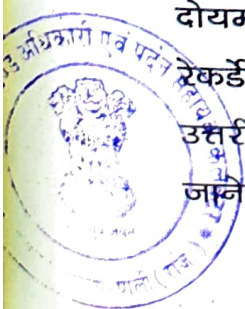 दोयम
रेकर्डे
उत्तरी
जाने
अधिकारी एवं पदेन सहायक
पाली (राज